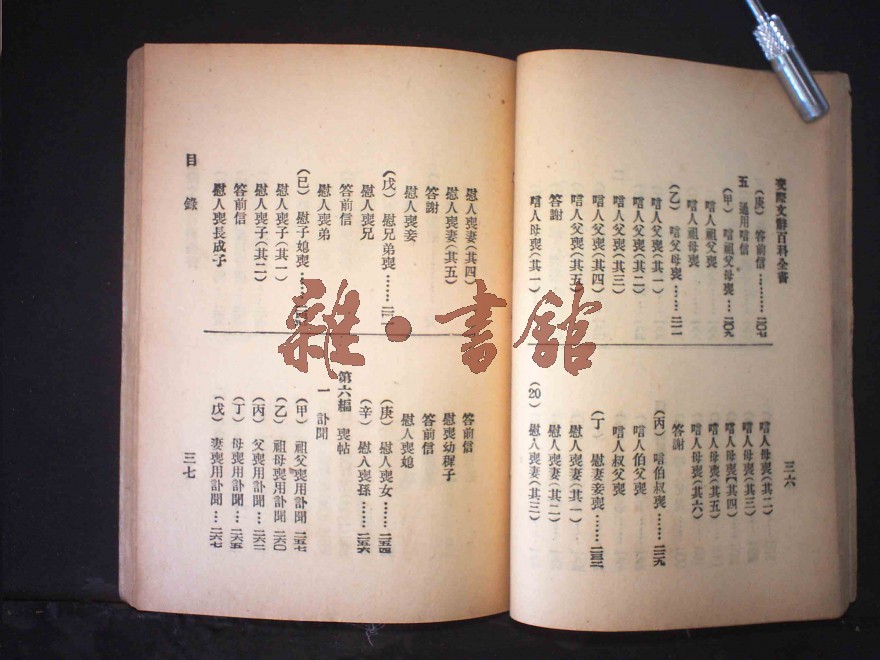 交際文辭百科全書
(庚) 答前信………二〇七
五 通用唁信
(甲) 唁祖父母喪……二〇九
唁人祖父喪
唁人祖母喪
(乙) 唁父母喪……二一一
唁人父喪(其一)
唁人父喪(其二)
唁人父喪(其三)
唁人父喪(其四)
唁人父喪(其五)
答謝
唁人母喪(其一)
唁人母喪(其二)
唁人母喪(其三)
唁人母喪(其四)
唁人母喪(其五)
唁人母喪(其六)
答謝
(丙) 唁伯叔喪……二二九
唁人伯父喪
唁人叔父喪
(丁) 慰妻妾喪……二三二
慰人喪妻(其一)
慰人喪妻(其二)
慰人喪妻(其三)
(20)
三六
慰人喪妻(其四)
慰人喪妻(其五)
答謝
慰人喪妾
(戊) 慰兄弟喪
慰人喪兄
答前信
慰人喪弟
(巳) 慰子媳喪
慰人喪子(其一)
慰人喪子(其二)
答前信
慰人喪長成子
答前信
慰喪幼穉子
答前信
慰人喪媳
(庚) 慰人喪女……二五四
(辛) 慰人喪孫……二五六
第六編 喪帖
一 訃聞
(甲) 祖父喪用訃聞…二五七
(乙) 祖母喪用訃聞…二六〇
(丙) 父喪用訃聞…二六二
(丁) 母喪用訃聞…二六五
(戊) 妻喪用訃聞…二六七
目 錄
三七
雜·書館